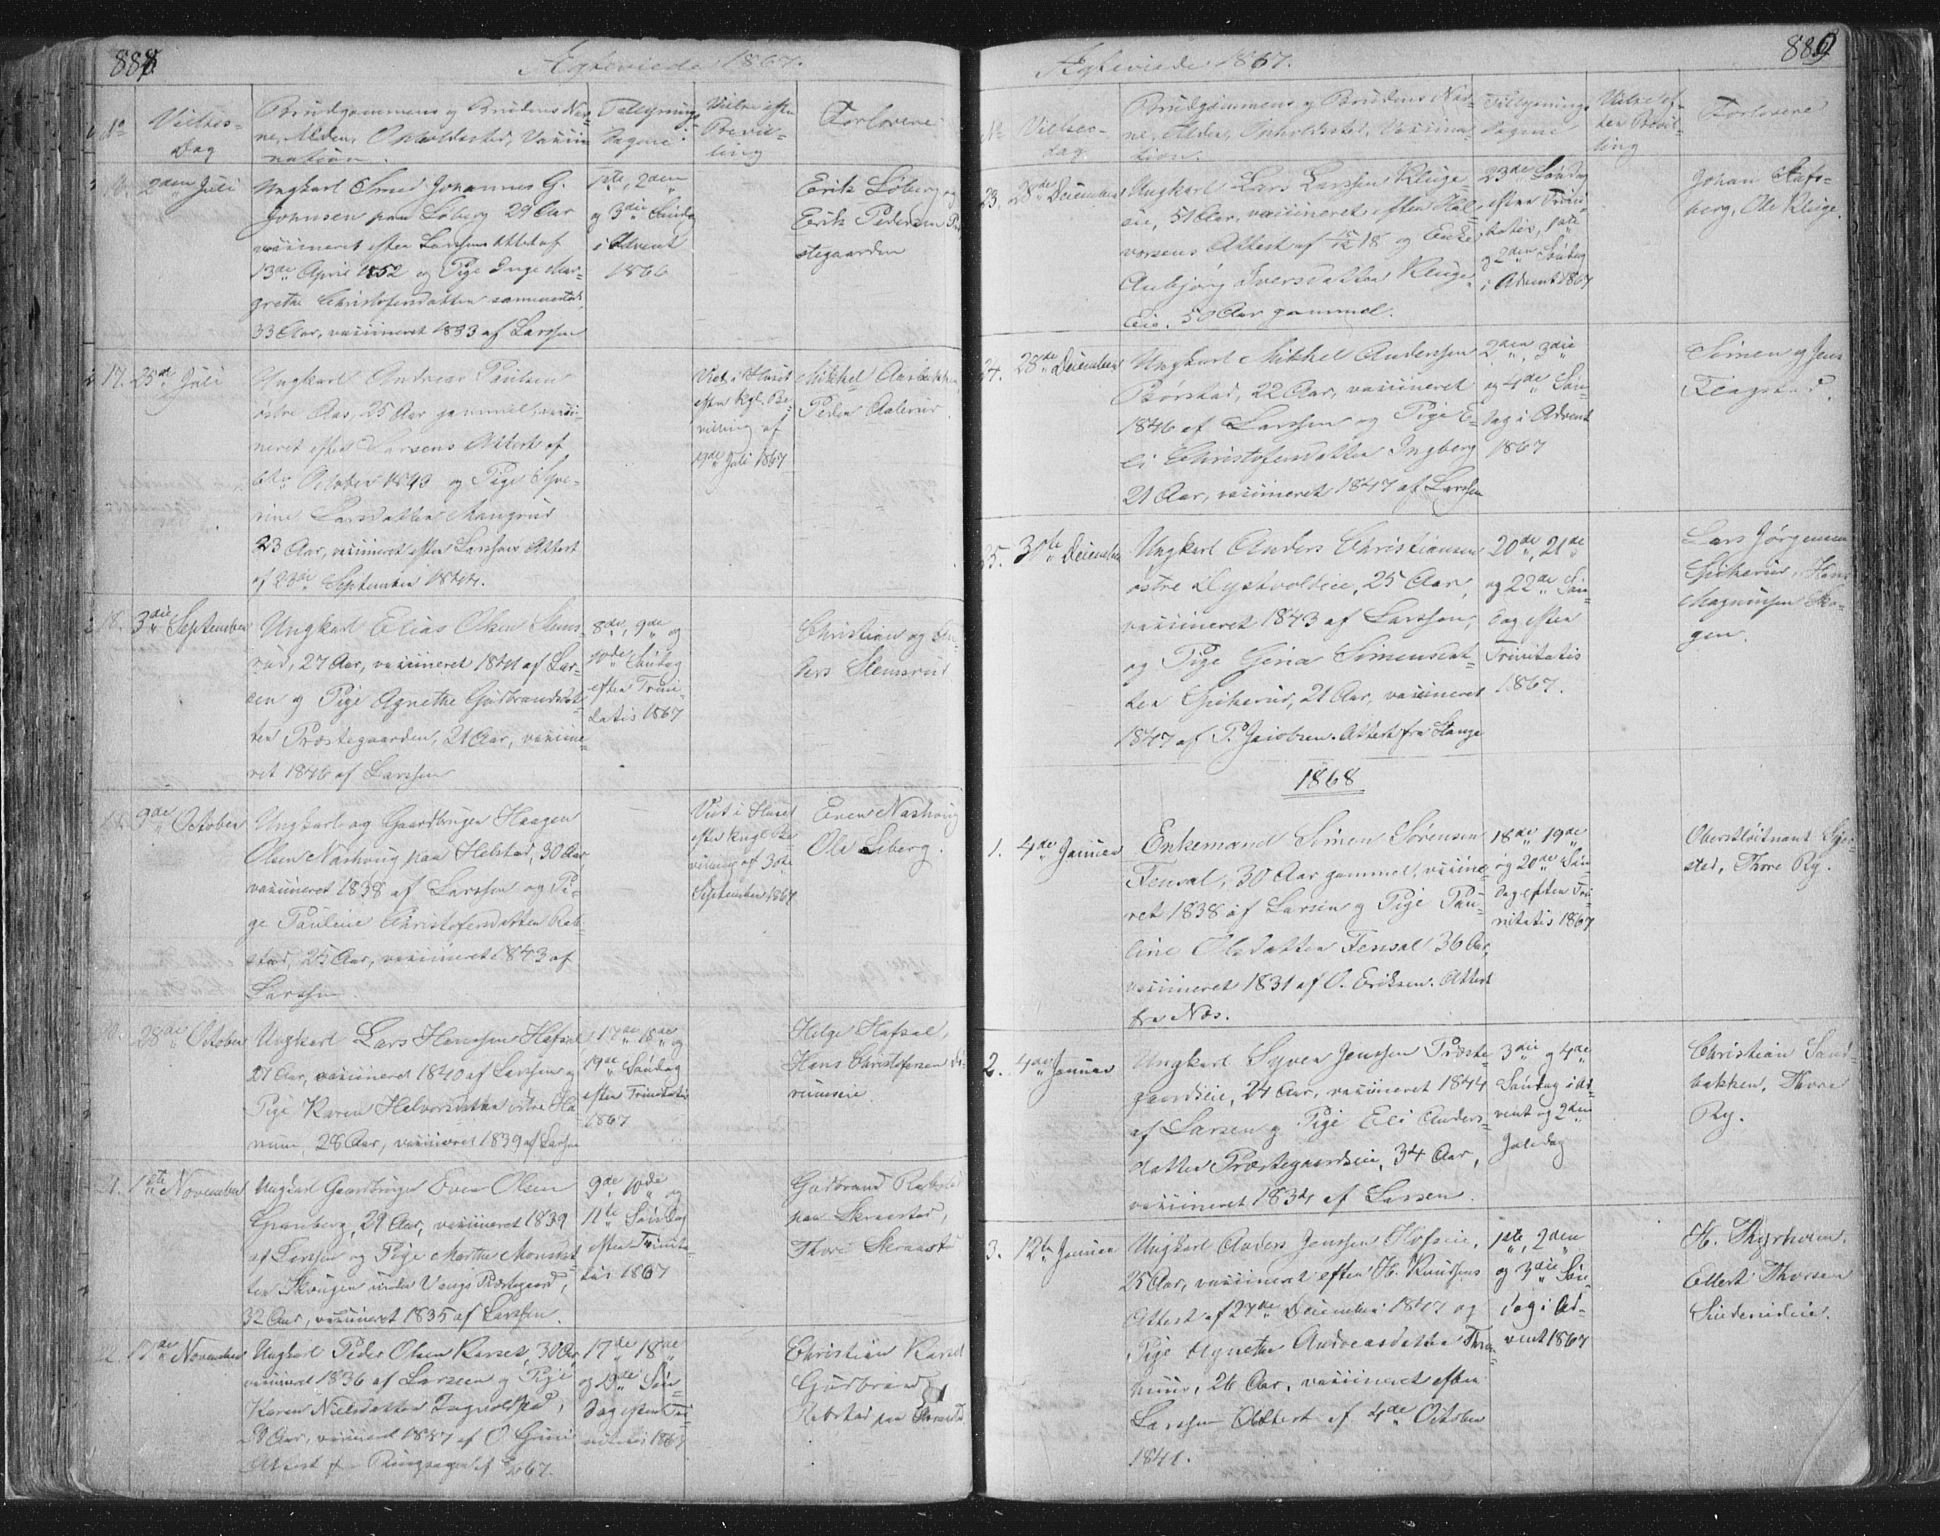 888
Ægteviede 1867.
No
Vielses-
Dag
Brudgommens og Brudens Nav-
ne, Alder, Opholdssted, Vaccin-
nation.
Tillysnings-
dagene
Vielse efter
Bevil-
ling
Forlovere
16. 2den Juli
Ungkarl Smed Johannes G.
Johnsen paa Løberg 29 Aar
vaccineret efter Larsens Attest af
13de April 1852 og Pige Inge Mar-
grethe Christofersdatter sammested,
33 Aar, vaccineret 1833 af Larssen
1ste, 2den
og 3die Søndag
i Advent
1866
Erik Løberg og
Erik Pedersen Præ-
stegaarden
17. 25de Juli
Ungkarl Andreas Paulsen
østre Aas, 25 Aar gammel, vacci-
neret efter Larsens Attest af
October 1843 og Pige Seve-
rine Larsdatter Mangrud
23 Aar, vaccineret efter Larsens Attest
af 23de September 1844.
Viet i Huset
efter Kgl. Be-
villing af
19de Juli 1867
Mikkel Aasbakken,
Peder Aalerud.
18. 3die September
Ungkarl Elias Olsen Stens-
rud, 27 Aar, vaccineret 1841 af Lar-
sen og Pige Agnethe Gudbrandsdat-
ter Præstegaarden, 21 Aar, vaccine-
ret 1846 af Larssen
8de, 9de og
10de Søndag
efter Trini-
tatis 1867
Christian og An-
ders Stensrud
19. 9de October
Ungkarl og Gaardbruger Haagen
Olsen Nashoug paa Helstad, 30 Aar
vaccineret 1838 af Larssen og Pi-
ge Pauline Christofersdatter Rab-
stad, 25 Aar, vaccineret 1843 af
Larssen.
Viet i Huset
efter Kngl. Be-
villing af 30te
September 1867
Even Nashoug
Ole Liberg.
20. 28de October
Ungkarl Lars Hanssen Hafsal
27 Aar, vaccineret 1840 af Larssen og
Pige Karen Halvorsdatter østre Ha-
num, 28 Aar, vaccineret 1839 af Larssen
17de, 18de og
19de Søndag
efter Trinitatis
1867
Helge Hafsal,
Hans Christofersen
21. 1ste November
Ungkarl Gaardbruger Even Olsen
Granberg, 29 Aar, vaccineret 1839
af Larssen og Pige Marthe Monsdat-
ter Skougen under Vangs Præstegaard,
32 Aar, vaccineret 1835 af Larssen.
9de, 10de og
11te Søndag
efter Trinita-
tis 1867
Gudbrand Rabstad
paa Skraastad,
Thore Skraastad
22. 17de November
Ungkarl Peder Olsen Karset, 30 Aar
vaccineret 1836 af Larssen og Pige
Karen Nielsdatter
20 Aar, vaccineret 1847 af O
Attest fr Ringsager af 67.
17de, 18de
og 19de Søn-
dag efter Tri-
nitatis 1867
Christian Karset
Gudbrand
Rabstad paa Skraastad
889
Ægteviede 1867.
No
Vielses-
dag
Brudgommens og Brudens Nav-
ne, Alder, Opholdssted, Vaccina-
tion.
Tillysnings-
dagene
Vielse ef-
ter Bevil-
ling
Forlovere
23. 28de December
Ungkarl Lars Larssen Kluge-
eie, 51 Aar, vaccineret efter Hal-
vorsens Attest af 15/12 18 og Enke
Anbjørg Iversdatter Kluge-
eie, 50 Aar gammel.
23de Søndag
efter Trini-
tatis, 1ste
og 2den Søndag
i Advent 1867
Johan Hafs-
berg, Ole Kluge.
24. 28de December
Ungkarl Mikkel Anderssen
Børstad, 22 Aar, vaccineret
1846 af Larssen og Pige E-
li Christofersdatter Ingberg
21 Aar, vaccineret 1847 af Larssen
2den, 3die
og 4de Søn-
dag i Advent
1867
Simen og Jens
Flagstad.
25. 30te December
Ungkarl Anders Christiansen
østre Dystvoldeie, 25 Aar,
vaccineret 1843 af Larssen,
og Pige Gina Simensdat-
ter Spikerud, 21 Aar, vaccineret
1847 af P. Jacobsen. Attest fra Stange
20de, 21de
og 22de Søn-
dag efter
Trinitatis
1867.
Lars Jørgensen
Spikerud, Hans
Magnussen Ska-
gen.
1868
1. 4de Januar
Enkemand Simen Sørensen
Fensal, 30 Aar gammel, vaccine-
ret 1838 af Larsen og Pige Pau-
line Olsdatter Fensal 36 Aar,
vaccineret 1831 af O. Eriksen. Attest
fra Næs.
18de, 19de
og 20de Søn-
dag efter Tri-
nitatis 1867
Oberstløitnant Sejer-
sted, Thore Ry.
2. 4de Januar
Ungkarl Syver Jenssen Præste-
gaardseie, 24 Aar, vaccineret 1844
af Larsen og Pige Eli Anders-
datter Præstegaardseie, 34 Aar,
vaccineret 1834 af Larsen.
3die og 4de
Søndag i Ad-
vent og 2den
Juledag
Christian Sand-
bakken, Thore
Ry.
3. 12te Januar
Ungkarl Anders Jenssen Hofseie,
25 Aar, vaccineret efter H. Knudsens
Attest af 27de December 1847 og
Pige Agnethe Andreasdatter Thra-
25 Aar, vaccineret efter
Larssen Attest af 4de October
1841.
1ste, 2den
og 3die Søn-
dag i Ad-
vent 1867
H. Thyrholm,
Ellert Thorsen